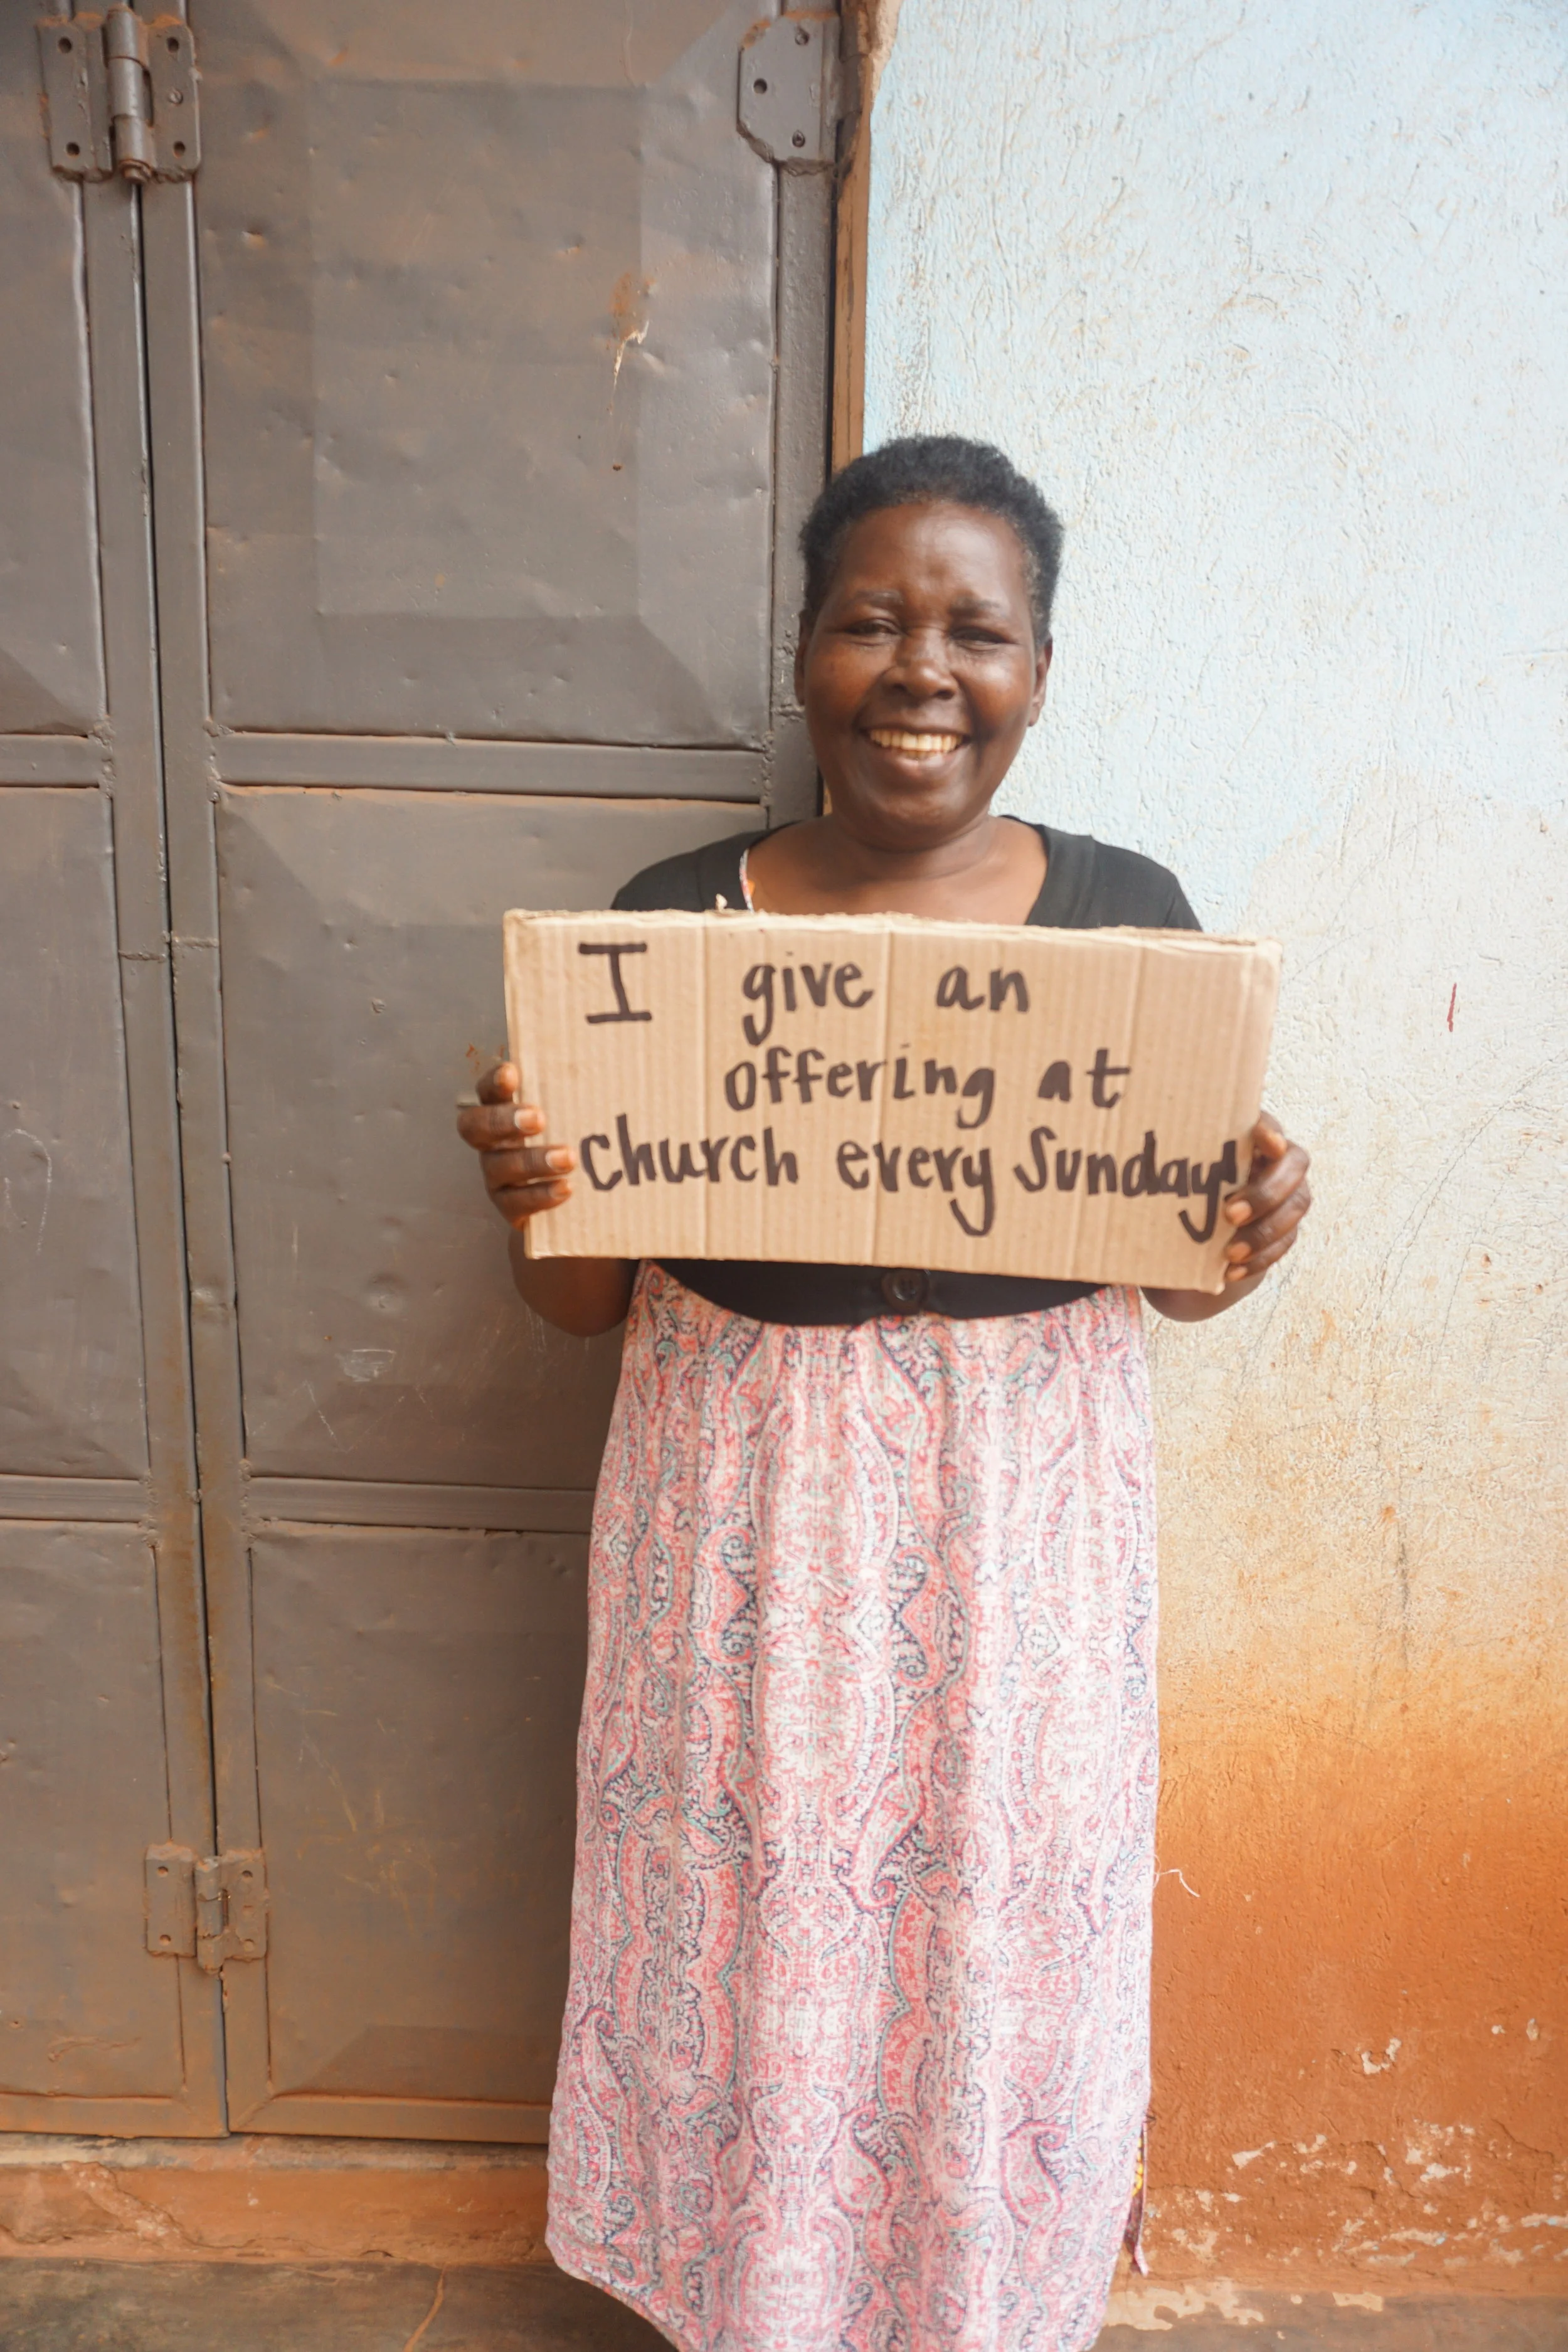 I give an
offering at
church every Sunday!